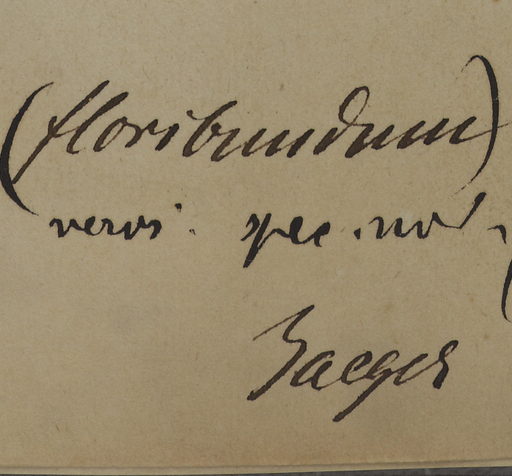 (floribundum)
veros. spec. nov.
Jaeger